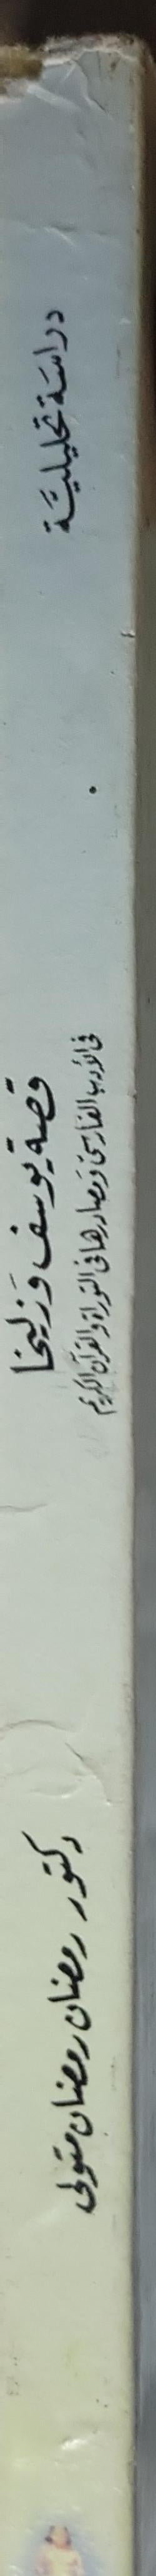 دراسة تحليلية
قصة يوسف وزليخا
في الأدب الفارسي ومصادرها في التوراة والقرآن الكريم
دكتور رمضان رمضان متولى